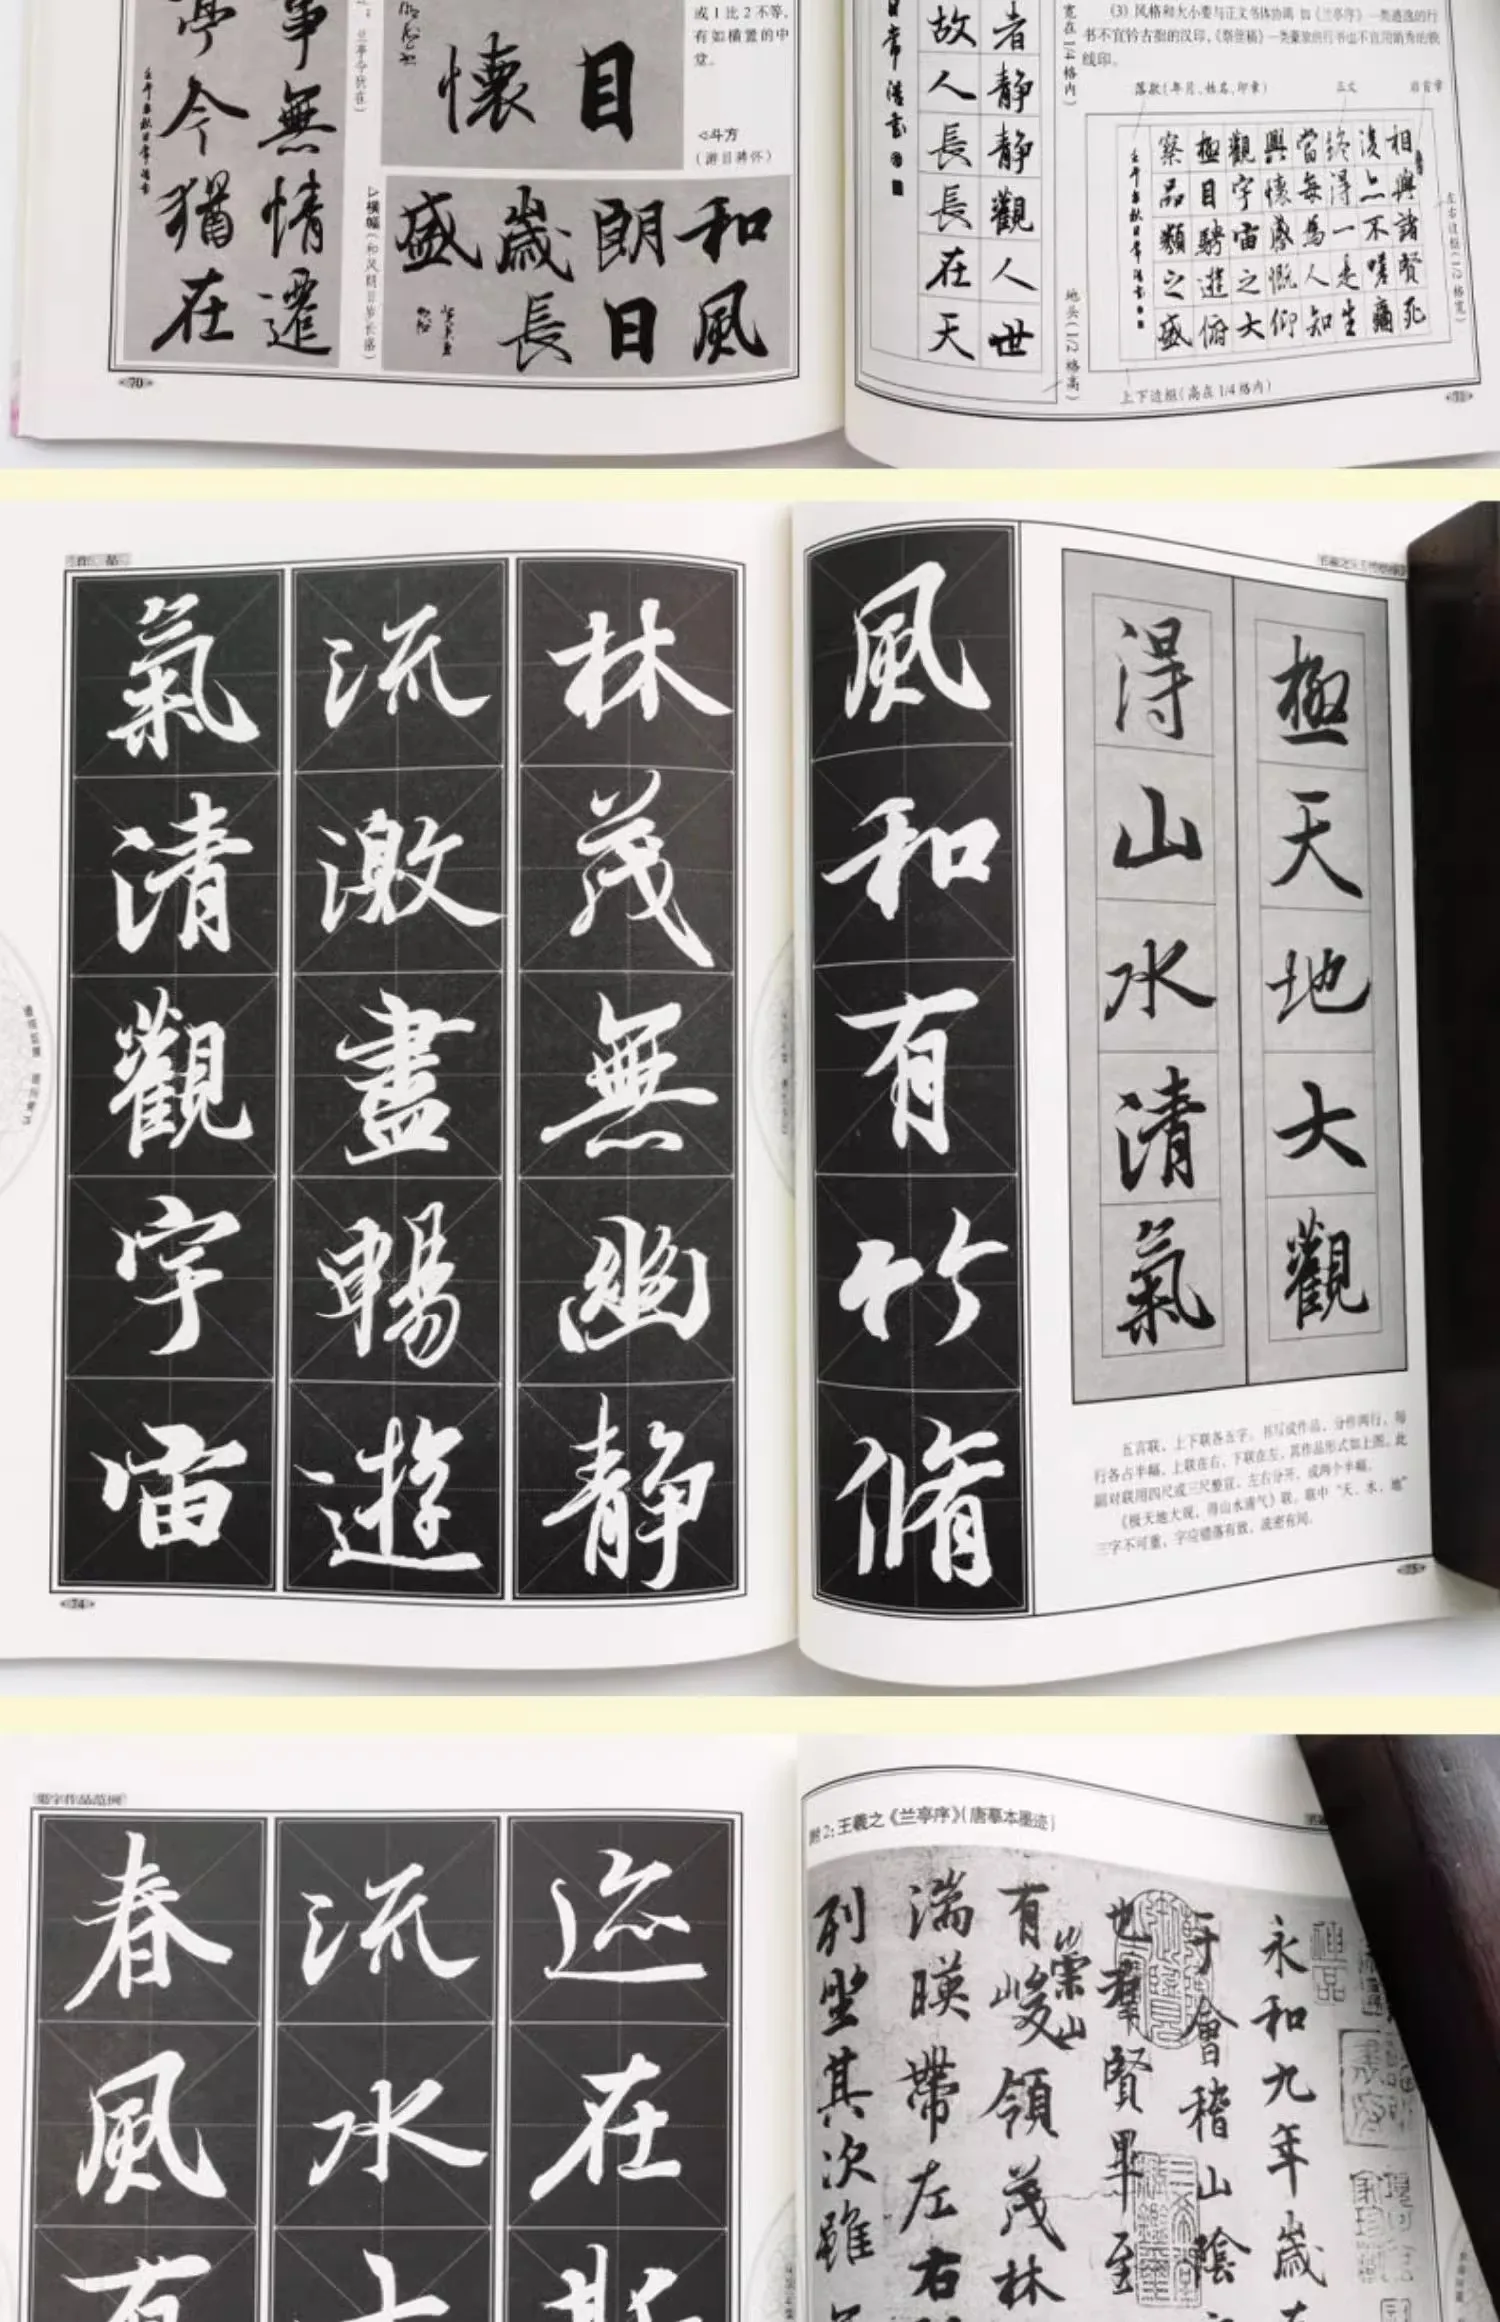 亭今猶在
事無情遷
壬午春秋日常浩書
兰亭今犹在)
懷目
或1比2不等,
有如横置的中
堂。
◁斗方
(游目骋怀)
▷横幅(和风朗日岁长盛)
和風
朗日
歲長
盛
70
日常浩書
者静静觀人世
故人長長在天
宽在1/4格内)
地头(1/2格高)
(3) 风格和大小要与正文书体协调 如《兰亭序》一类遒逸的行
书不宜钤古拙的汉印,《祭侄稿》一类豪放的行书也不宜用娟秀的铁
线印。
落款(年月、姓名、印章)
正文
启首章
相興諸賢死
後亦不嗟痛
終得一是生
當每為人知
興懷感慨仰
觀宇宙之大
極目騁遊俯
察品類之盛
左右边框(1/2格宽)
上下边框(高在1/4格内)
林茂無幽静
流激盡暢遊
氣清觀宇宙
74
風和有竹脩
極天地大觀
得山水清氣
五言联,上下联各五字。书写成作品,分作两行,每
行各占半幅,上联在右,下联在左,其作品形式如上图。此
副对联用四尺或三尺整宣,左右分开,成两个半幅。
《极天地大观,得山水清气》联,联中“天、水、地”
三字不可重,字应错落有致,疏密有间。
75
集字作品范例
迹在斯
流水
春風有
附2:王羲之《兰亭序》(唐摹本墨迹)
永和九年歲
于會稽山陰
也羣賢畢至
此
崇山
有峻領茂林
湍暎帶左右
列坐其次雖
神品